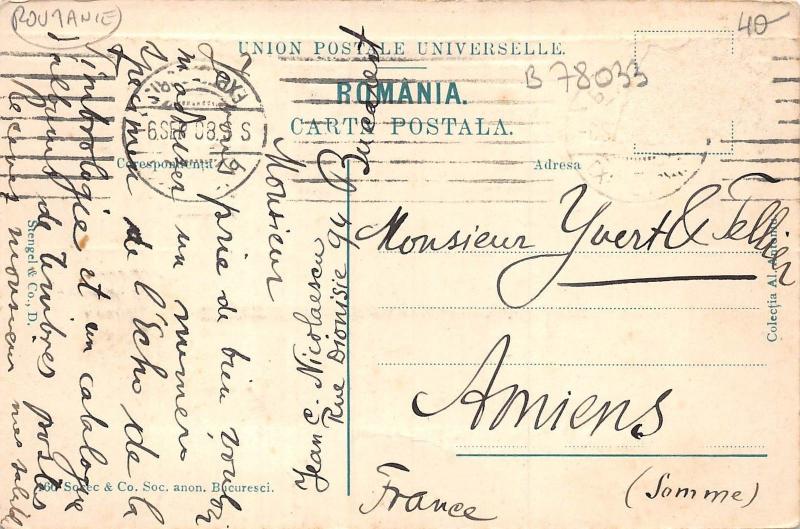 ROUMANIE
40
UNION POSTALE UNIVERSELLE.
B 78033
ROMÂNIA.
CARTE POSTALA.
6 SEP 08 S S
Corespondenţa
Adresa
Monsieur Yvert & Tellier
Amiens
(Somme)
France
Monsieur
Je vous prie de bien vouloir
m'adresser un numero
specimen de l'Echo de la
timbrologie et un catalogue
de timbres postes
Recevez monsieur mes
Jean C. Nicolaescu
Rue Dionisie 94 Bucarest
Stengel & Co., D.
Colecţia Al. Antoniu
Socec & Co. Soc. anon. Bucuresci.